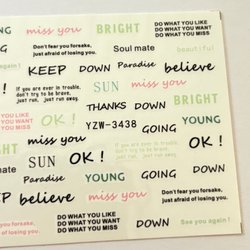 DO WHAT YOU LIKE
DO WHAT YOU WANT
DO WHAT YOU MISS
miss you
BRIGHT
Don't fear you forsake,
just afraid of losing you.
Soul mate
beautiful
again!
KEEP
DOWN
Paradise
believe
If you are ever in trouble,
don't try to be brave,
just run, just run away.
SUN
DOWN
GREEN
THANKS
DOWN
BRIGHT
OK!
YZW-3438
GOING
YOUNG
miss you
If you are ever in trouble,
don't try to be brave,
just run, just run away.
GOING
OK!
mate
SUN
OK!
DOWN
YOUNG
Paradise
believe
miss you
Don't fear you forsake,
just afraid of losing you.
DO WHAT YOU LIKE
DO WHAT YOU WANT
DO WHAT YOU MISS
DOWN
See you again!